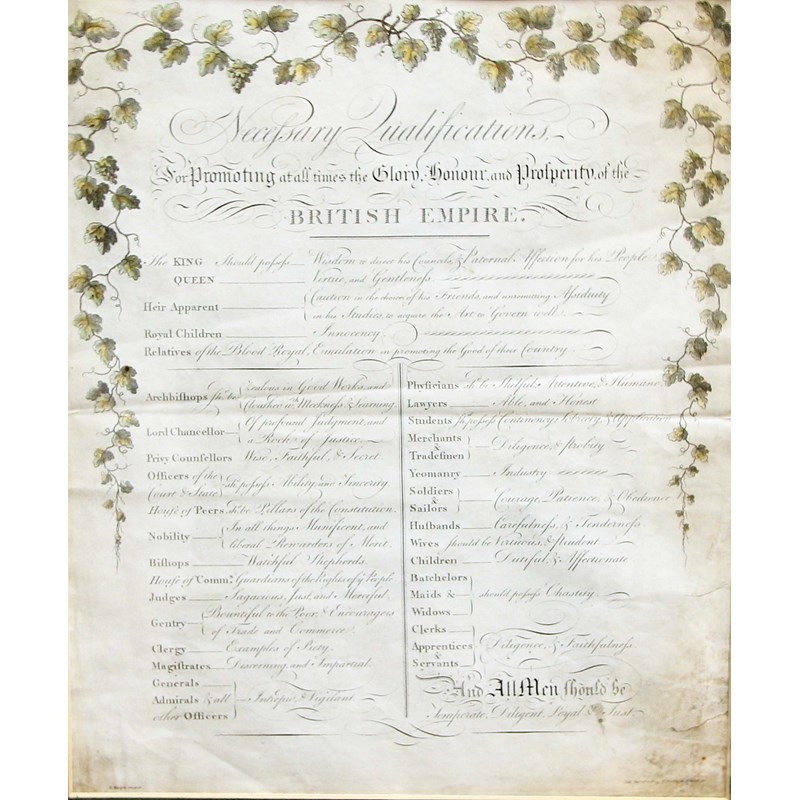 Neceſsary Qualifications,
For Promoting at all times the Glory, Honour, and Proſperity, of the
BRITISH EMPIRE.
The KING Should poſseſs Wisdom to direct his Councils, & Paternal Affection for his People
QUEEN Virtue, and Gentleneſs
Heir Apparent Caution in the choice of his Friends, and unremitting Aſsiduity
in his Studies, to acquire the Art to Govern well.
Royal Children Innocency
Relatives of the Blood Royal, Emulation in promoting the Good of their Country.
Archbiſhops Shd. be Zealous in Good Works, and
Cloathed wth. Meekneſs & Learning.
Lord Chancellor Of profound Judgment, and
a Rock of Justice.
Privy Counſellors Wise, Faithful, & Secret.
Officers of the
Court & State shd. poſseſs Ability, and Sincerity
House of Peers shd. be Pillars of the Constitution.
Nobility In all things Munificent, and
liberal Rewarders of Merit.
Biſhops Watchful Shepherds.
House of Comms. Guardians of the Rights of ye People
Judges Sagacious, Just, and Merciful.
Gentry Bountiful to the Poor, & Encouragers
of Trade and Commerce.
Clergy Examples of Piety.
Magiſtrates Discerning and Impartial.
Generals
Admirals & all Intrepid, & Vigilant
other Officers
Phyſicians shd. be Skilful, Attentive, & Humane
Lawyers Able, and Honest
Students shd. poſseſs Continency, Sobriety, & Application
Merchants
&
Tradeſmen Diligence, & Probity
Yeomanry Industry
Soldiers
&
Sailors Courage, Patience, & Obedience
Huſbands Carefulneſs, & Tenderneſs
Wives should be Virtuous, & Prudent
Children Dutiful, & Affectionate
Batchelors
Maids & should poſseſs Chastity.
Widows
Clerks
Apprentices Diligence, & Faithfulneſs.
&
Servants
And All Men ſhould be
Temperate, Diligent, Loyal & Just.